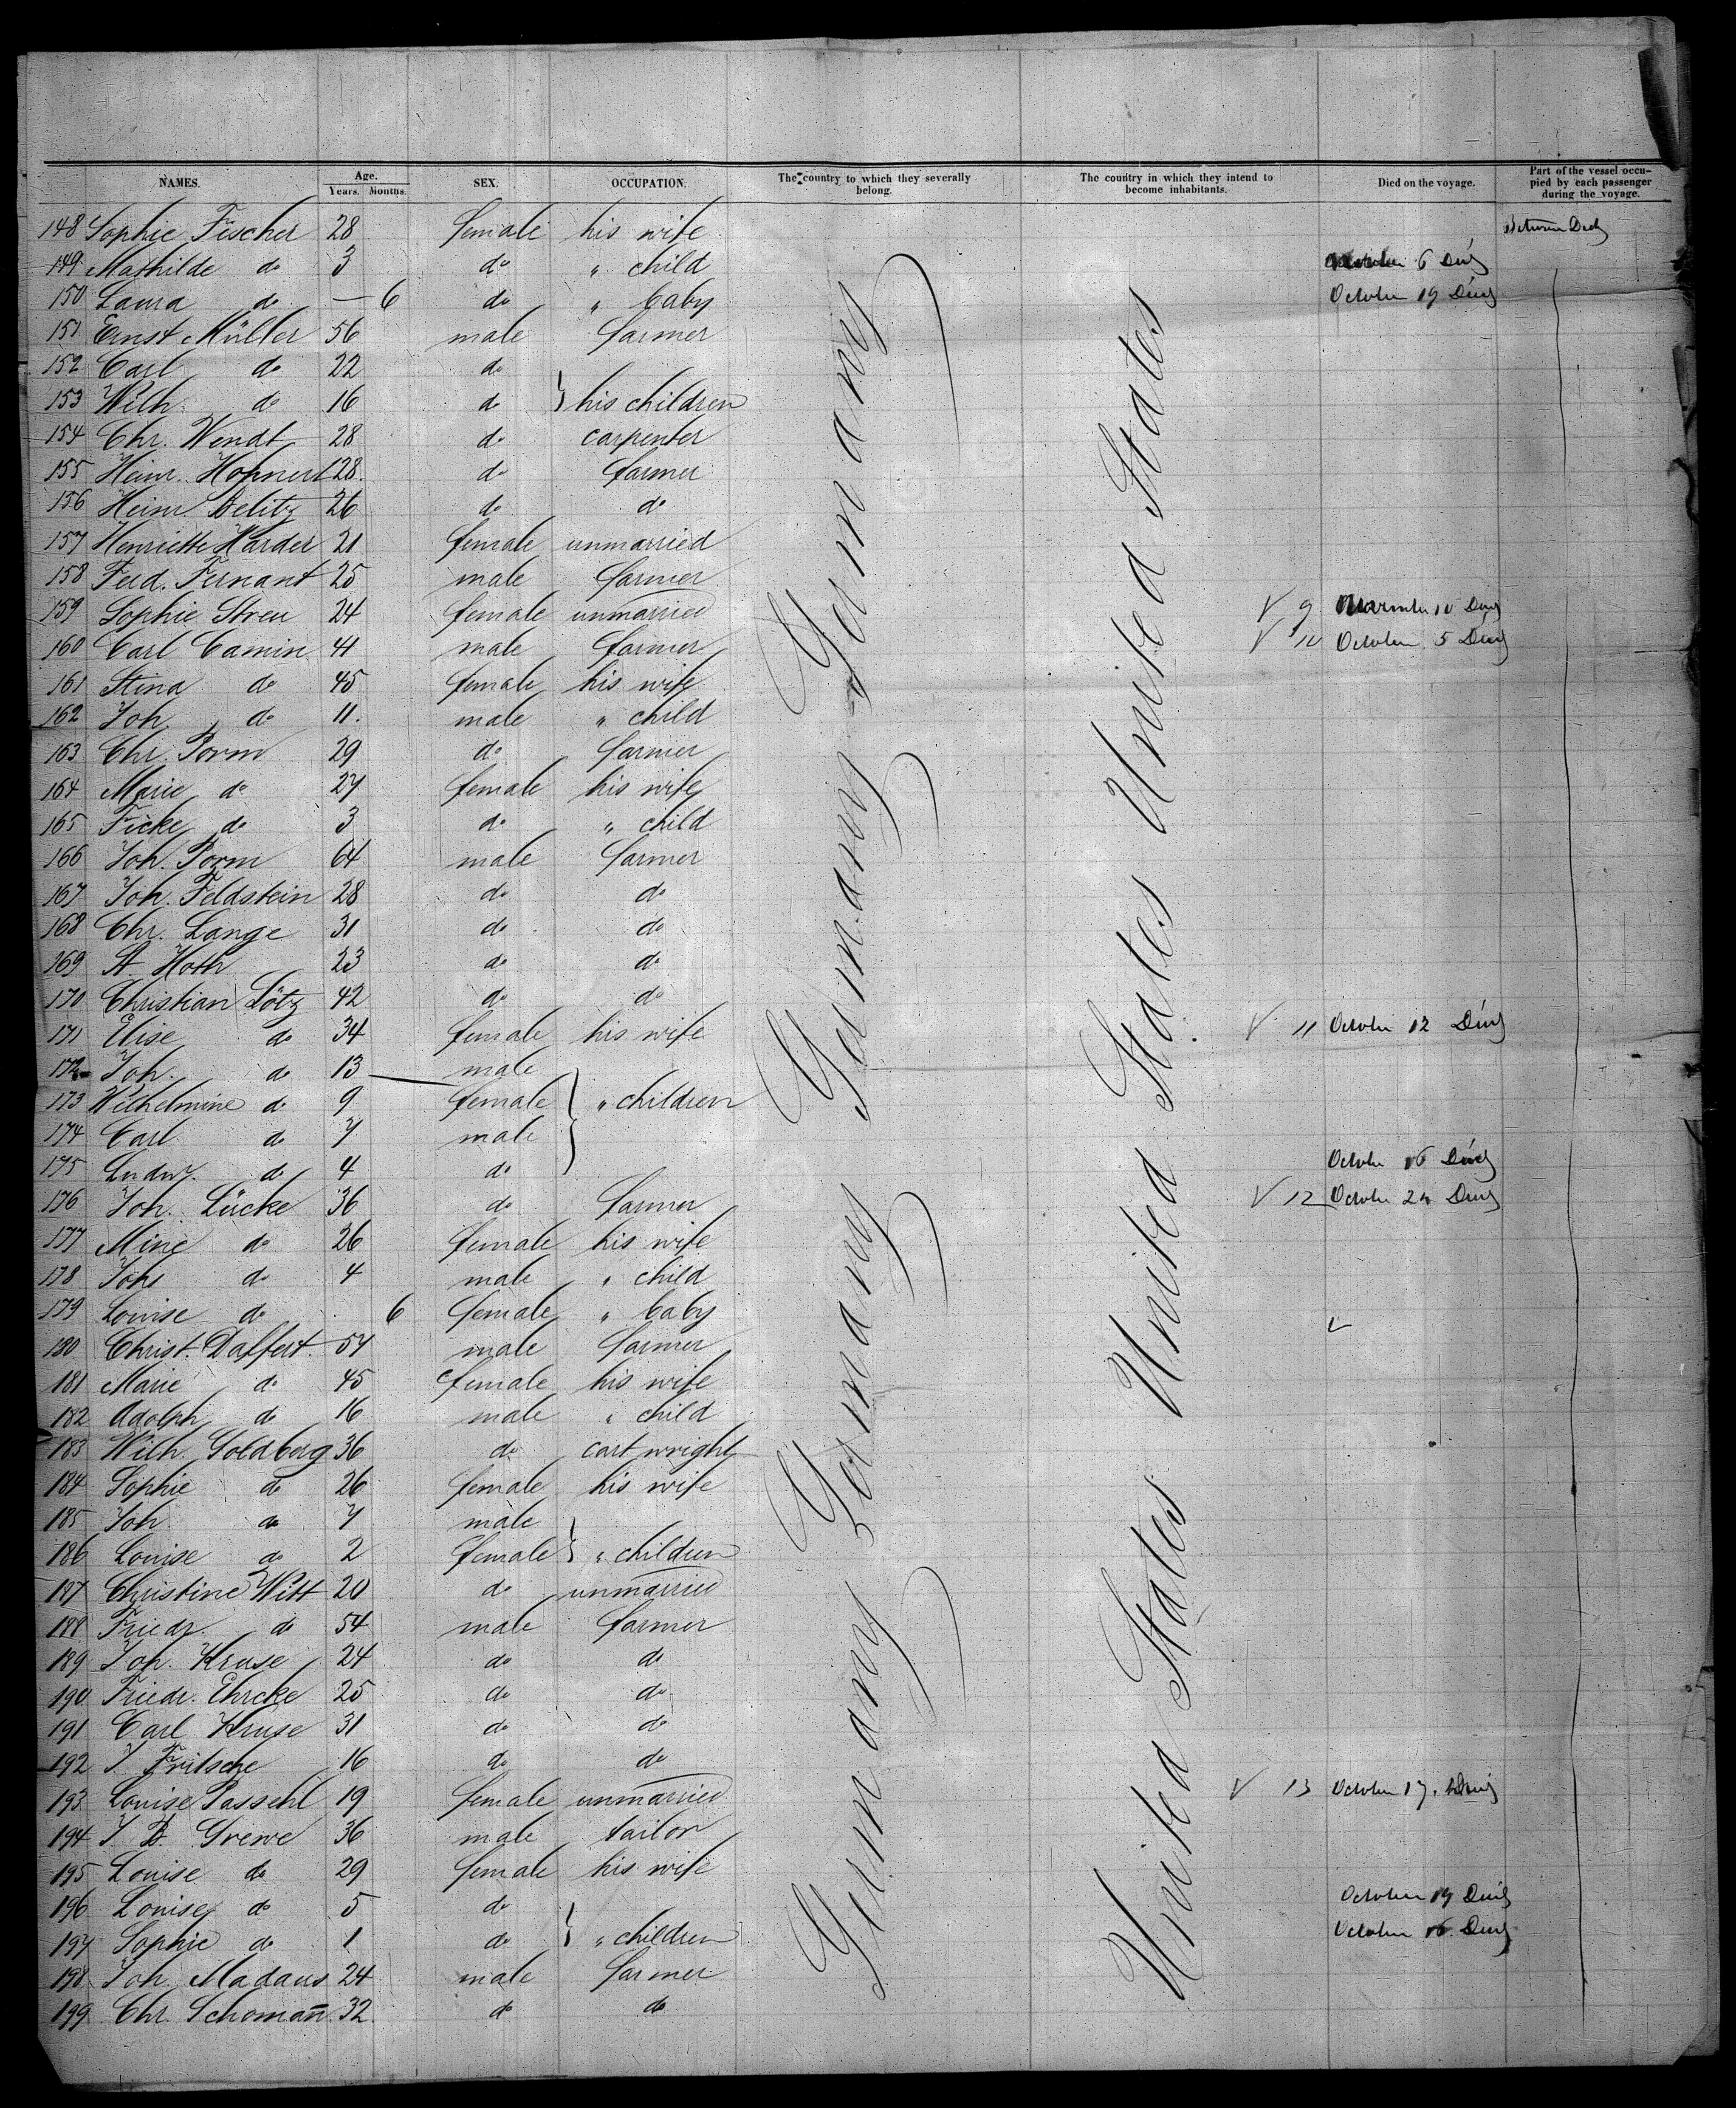 NAMES. Age. Years. Months. SEX. OCCUPATION. The country to which they severally belong. The country in which they intend to become inhabitants. Died on the voyage. Part of the vessel occupied by each passenger during the voyage.
148 Sophie Fischer 28 female his wife Between Deck
149 Mathilde do 3 do " child 6
150 Laura do — 6 do " baby October 19
151 Ernst Müller 56 male farmer
152 Carl do 22 do
153 Wilh. do 16 do } his children
154 Chr. Wendt 28 do carpenter
155 Heinr. Hopnert 28. do farmer
156 Heinr Delitz 26 do do
157 Henriette Harder 21 female unmarried
158 Ferd. Fernant 25 male farmer
159 Sophie Streu 24 female unmarried V 9 November 10
160 Carl Camin 41 male farmer V 10 October 5
161 Stina do 45 female his wife
162 Joh. do 11. male " child
163 Chr. Porm 29 do farmer
164 Marie do 27 female his wife
165 Ficke do 3 do " child
166 Joh. Porm 64 male farmer
167 Joh. Feldstein 28 do do
168 Chr. Lange 31 do do
169 Hoth 23 do do
170 Christian Lötz 42 do do
171 Elise do 34 female his wife V 11 October 12
172 Joh. do 13 male
173 Wilhelmine do 9 female } " children
174 Carl do 7 male
175 Ludw. do 4 do October 16
176 Joh. Lücke 36 do farmer V 12 October 24
177 Mine do 26 female his wife
178 Johs do 4 male " child
179 Louise do 6 female " baby
180 Christ. Dalfert 54 male farmer
181 Marie do 45 female his wife
182 Adolph do 16 male " child
183 Wilh. Goldberg 36 do cartwright
184 Sophie do 26 female his wife
185 Joh. do 7 male
186 Louise do 2 female } " children
187 Christine Witt 20 do unmarried
188 Friedr. do 54 male farmer
189 Joh. Kruse 24 do do
190 Friedr. Ehrcke 25 do do
191 Carl Kruse 31 do do
192 J. Fritsche 16 do do
193 Louise Passehl 19 female unmarried V 13 October 17.
194 J. Grewe 36 male tailor
195 Louise do 29 female his wife
196 Louise do 5 do October 19
197 Sophie do 1 do } " children October 16
198 Joh. Madaus 24 male farmer
199 Chr. Schoman̄ 32 do do
Germany Germany Germany Germany Germany
United States United States United States United States